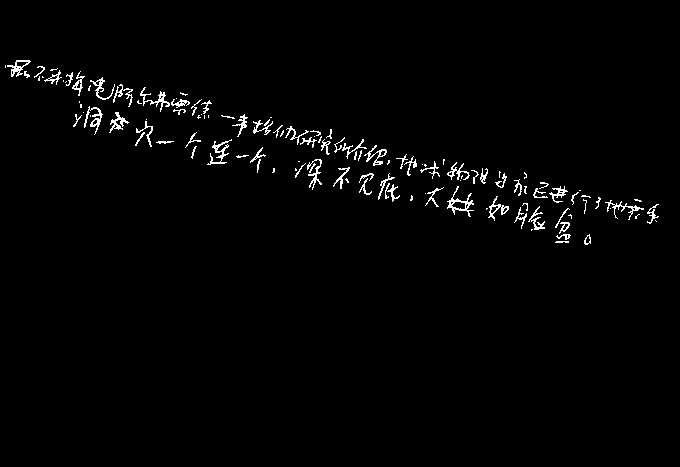 据不来梅港阿尔弗雷德一韦格纳研究所介绍,地球物理学家已进行了地震系
洞穴一个连一个,深不见底,大如脸盆。